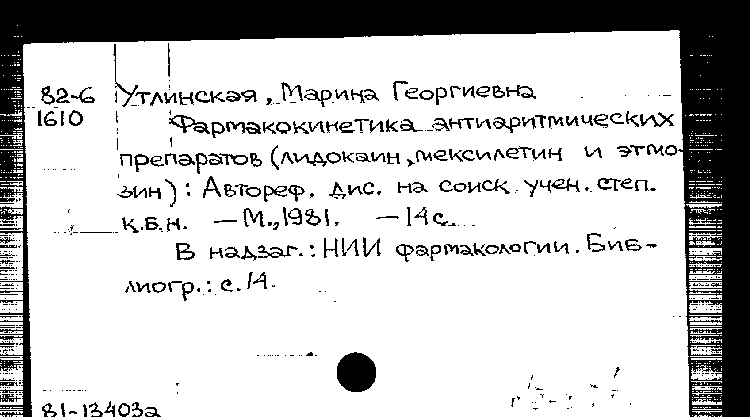 82-6 Утлинская, Марина Георгиевна
1610 Фармакокинетика антиаритмических
препаратов (лидокаин, мексилетин и этмо-
зин): Автореф. дис. на соиск. учен. степ.
к.б.н. — М., 1981. — 14 с.
В надзаг.: НИИ фармакологии. Биб-
лиогр.: с. 14.
81-13403а